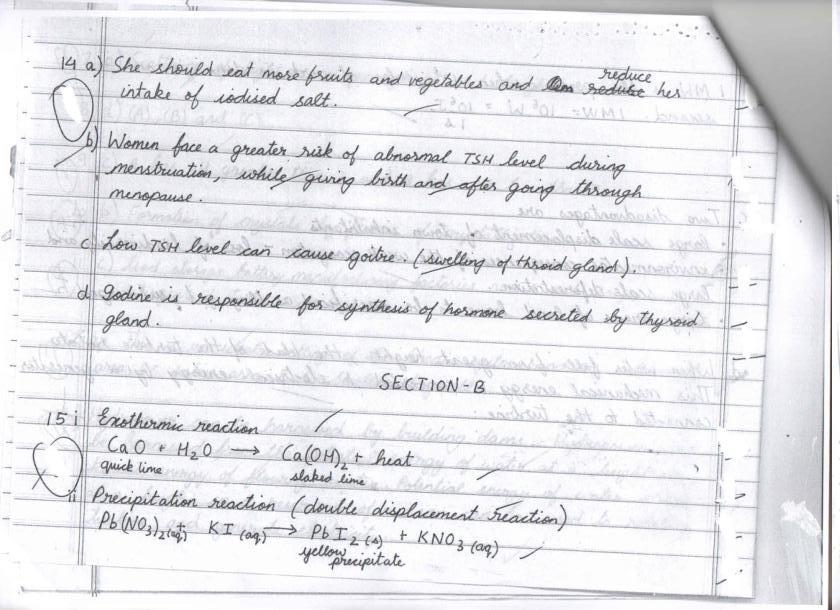 14 a) She should eat more fruits and vegetables and reduce her
intake of iodised salt.
b) Women face a greater risk of abnormal TSH level during
menstruation, while giving birth and after going through
menopause.
c Low TSH level can cause goitre. (swelling of throid gland).
d Iodine is responsible for synthesis of hormone secreted by thyroid
gland.
SECTION-B
15 i Exothermic reaction
CaO + H₂O → Ca(OH)₂ + heat
quick lime slaked lime
ii Precipitation reaction (double displacement reaction)
Pb(NO₃)₂(aq) + KI (aq) → PbI₂(s) + KNO₃(aq)
yellow
precipitate